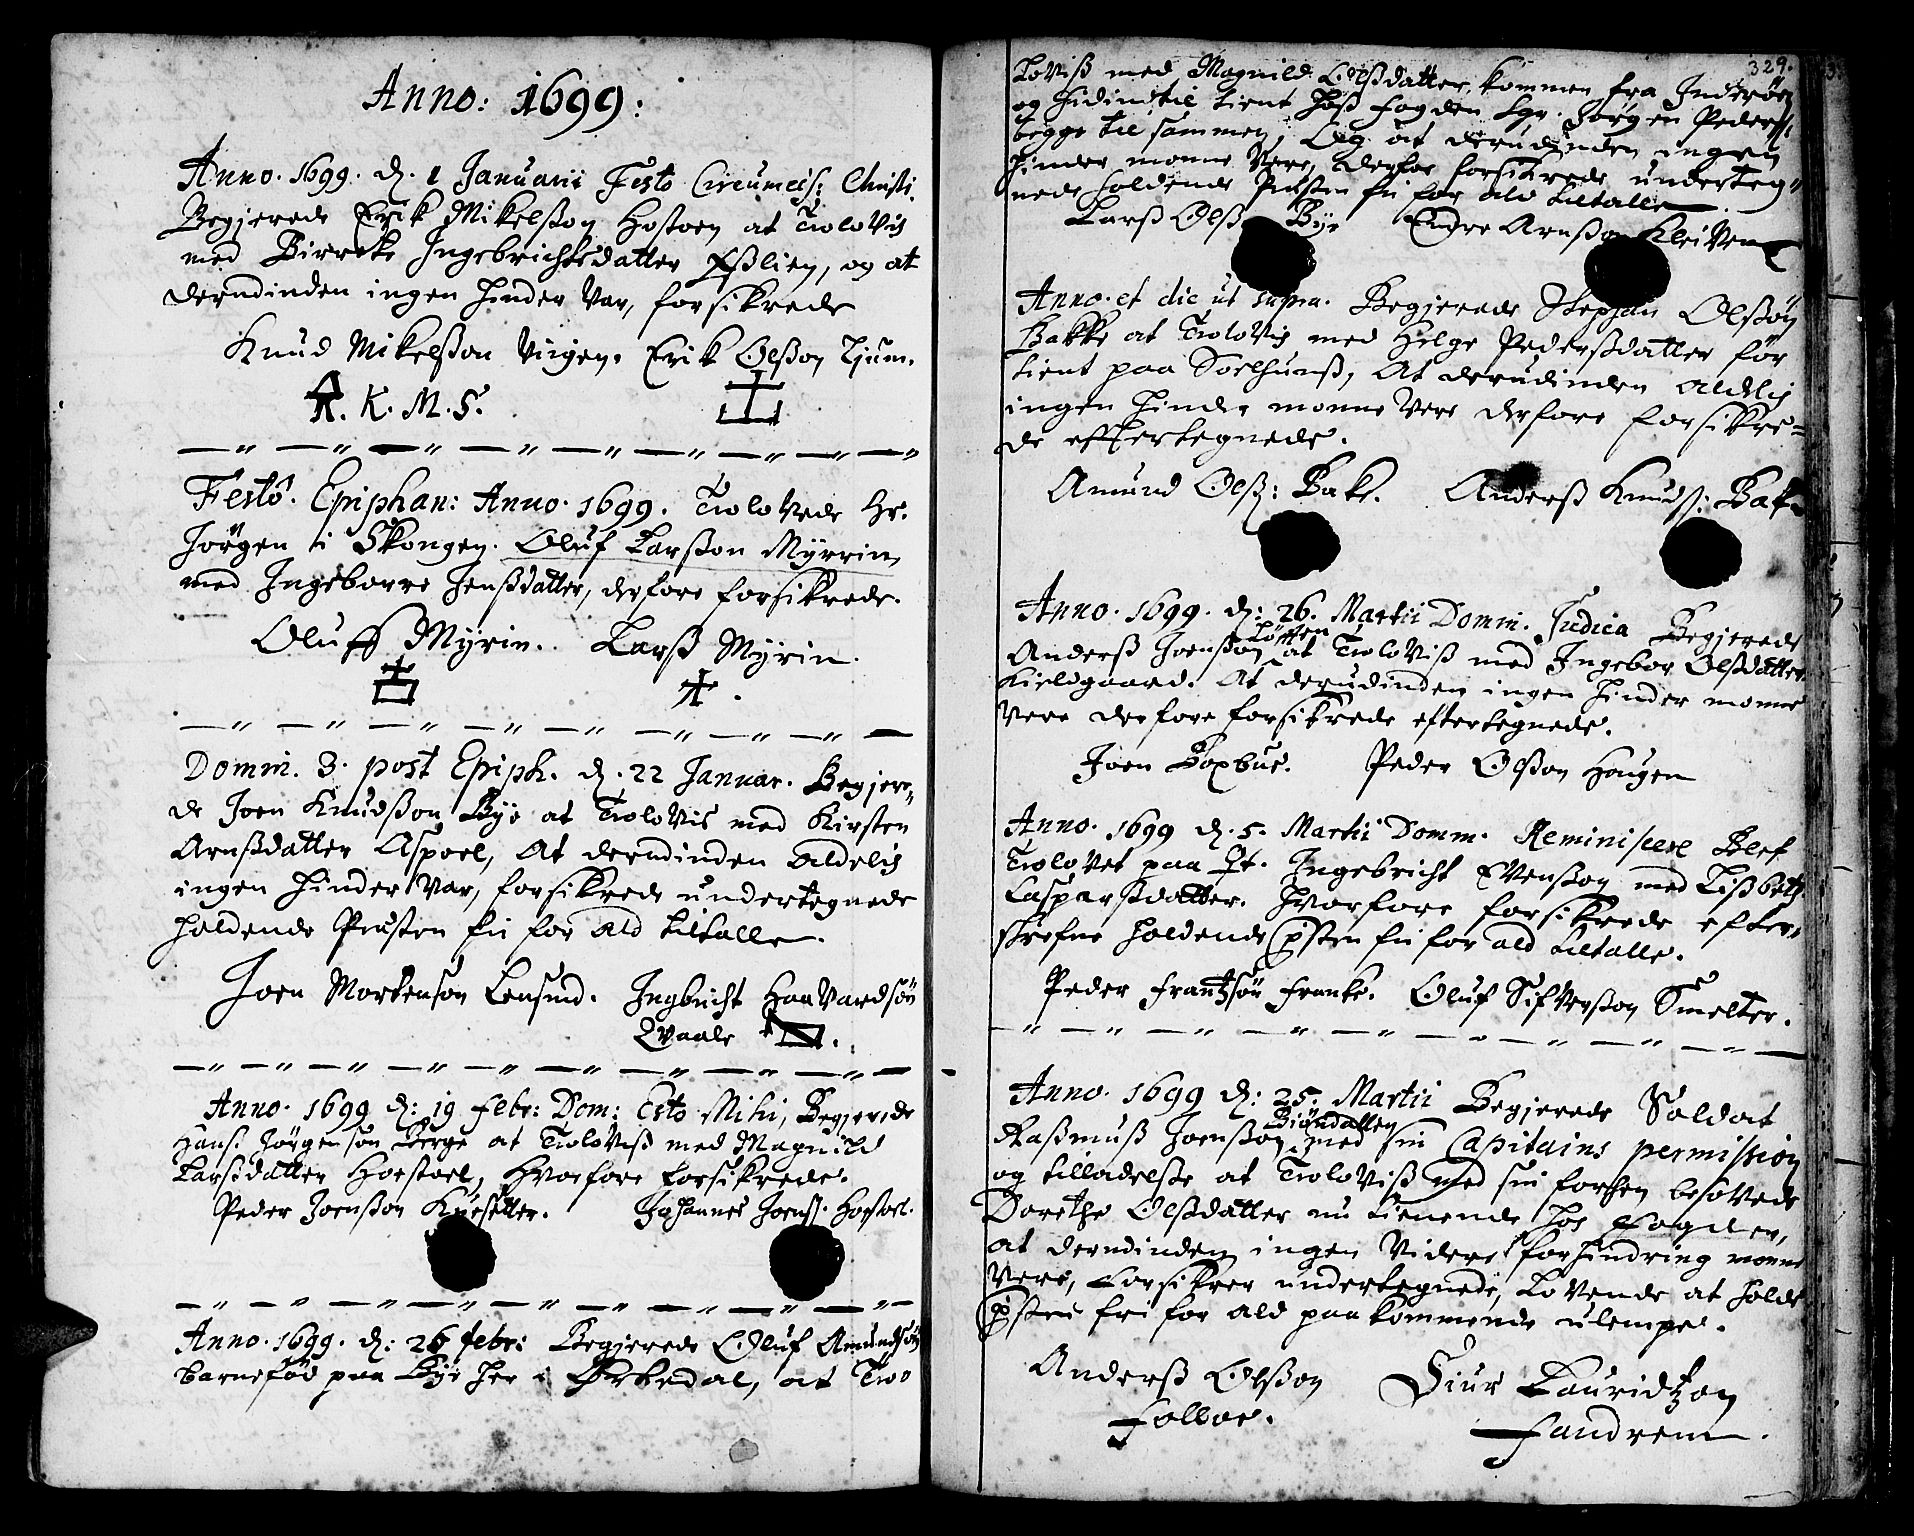 Anno: 1699:
Anno. 1699. d. 1 Januarii Festo Circumcis: Christi.
Begjerede Erik Mikelßøn Hostoen at Troloviß
med Birrete Ingebrichtsdatter Eßlien, og at
derudinden ingen hinder var, forsikrede
Knud Mikelßon Virgen. Erik Olßon Ljum.
K. M. S.
Festo. Epiphan: Anno. 1699. Trolovede Hr.
Jörgen i Skongen. Oluf Larßon Myrrin
med Ingeborre Jenßdatter, derfore forsikrede.
Oluff Myrin. Larß Myrin.
Domin. 3. post Epiph. d. 22 Januar. Begjere-
de Joen Knudßon Bye at Trolovis med Kirsten
Arnßdatter Aspoel, At derudinden aldelis
ingen hinder var, forsikrede undertegnede
holdende Præsten fri for ald tiltalle.
Joen Mortenson Lensmd. Ingbricht Haavardsön
Qvaale
Anno. 1699 d: 19 febr: Dom: Esto Mihi, Begjerede
Hans Jörgensøn Berge at Troloviß med Magnild
Larsdatter Hoestoel, hvorfore forsikrede.
Peder Joenßon Kuesetter. Johannes Joenß. Hostoel.
Anno. 1699. d: 26 febr: Begjerede Oluf Amundsön
barnefød paa Bye her i Orkedal, at Troo
329.
loviß med Magnild Olßdatter, kommen fra Inderöen
og hidindtil tient hoß fogden Sgr. Jörgen Pederß.
begge til sammen, Og at derudinden ingen
hinder monne Vere, derfor forsikrede underteg-
nede holdende Præsten fri for ald tiltalle
Larß Olß. Bye Endre Arnßon Kleiven
Anno. et die ut supra. Begjerede Stephan Olßön
Bakke at Trolovis med Helge Pederßdatter för
tient paa Soelhuus, At derudinden aldelis
ingen hinder monne Vere derfore forsikre-
de effterte­gnede.
Amund Olß: Bake. Anderß Knudß: Bak
Anno. 1699. d: 26. Martii Domin. Judica Begjerede
Anderß Joenßon at Troloviß med Ingebor Olßdatter
Kieldgaard. At derudinden ingen hinder monne
Vere derfore forsikrede eftertegnede.
Joen Boxbue. Peder Olßon Haugen
Anno. 1699 d. 5. Martii Domin. Reminiscere Blef
Trolovet paa Ingebricht Evenßøn med Lißbeth
Casparßdatter. Hvorfore forsikrede efter-
skrefne holdende Psten fri for ald tiltalle.
Peder Frantzön Franke. Oluf Sifverßon Smelter.
Anno. 1699 d: 25. Martii Begjerede Soldat
Raßmuß Joenßon med sin Capitains permission
og tilladelse at Troloviß med sin forhen besovede
Dorethe Olßdatter nu tienende hos Fogden,
at derudinden ingen videre forhindring monne
Vere, forsikrer undertegnede, lovende at holde
Psten fri for ald paakommende ulempe.
Anderß Olßon Siur Lauridtzøn
Solboe. Fandrem.